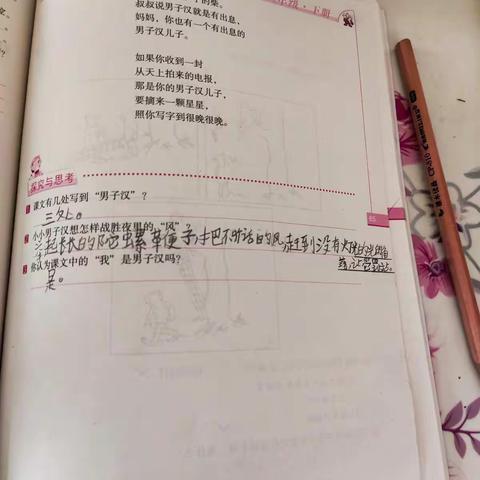 年级·下册
的柴。
叔叔说男子汉就是有出息,
妈妈,你也有一个有出息的
男子汉儿子。
如果你收到一封
从天上拍来的电报,
那是你的男子汉儿子,
要摘来一颗星星,
照你写字到很晚很晚。
探究与思考
课文有几处写到“男子汉”?
三处。
小小男子汉想怎样战胜夜里的“风”?
起长长的陀螺鞭子把不听话的风赶到没有火
你认为课文中的“我”是男子汉吗?
是。
65